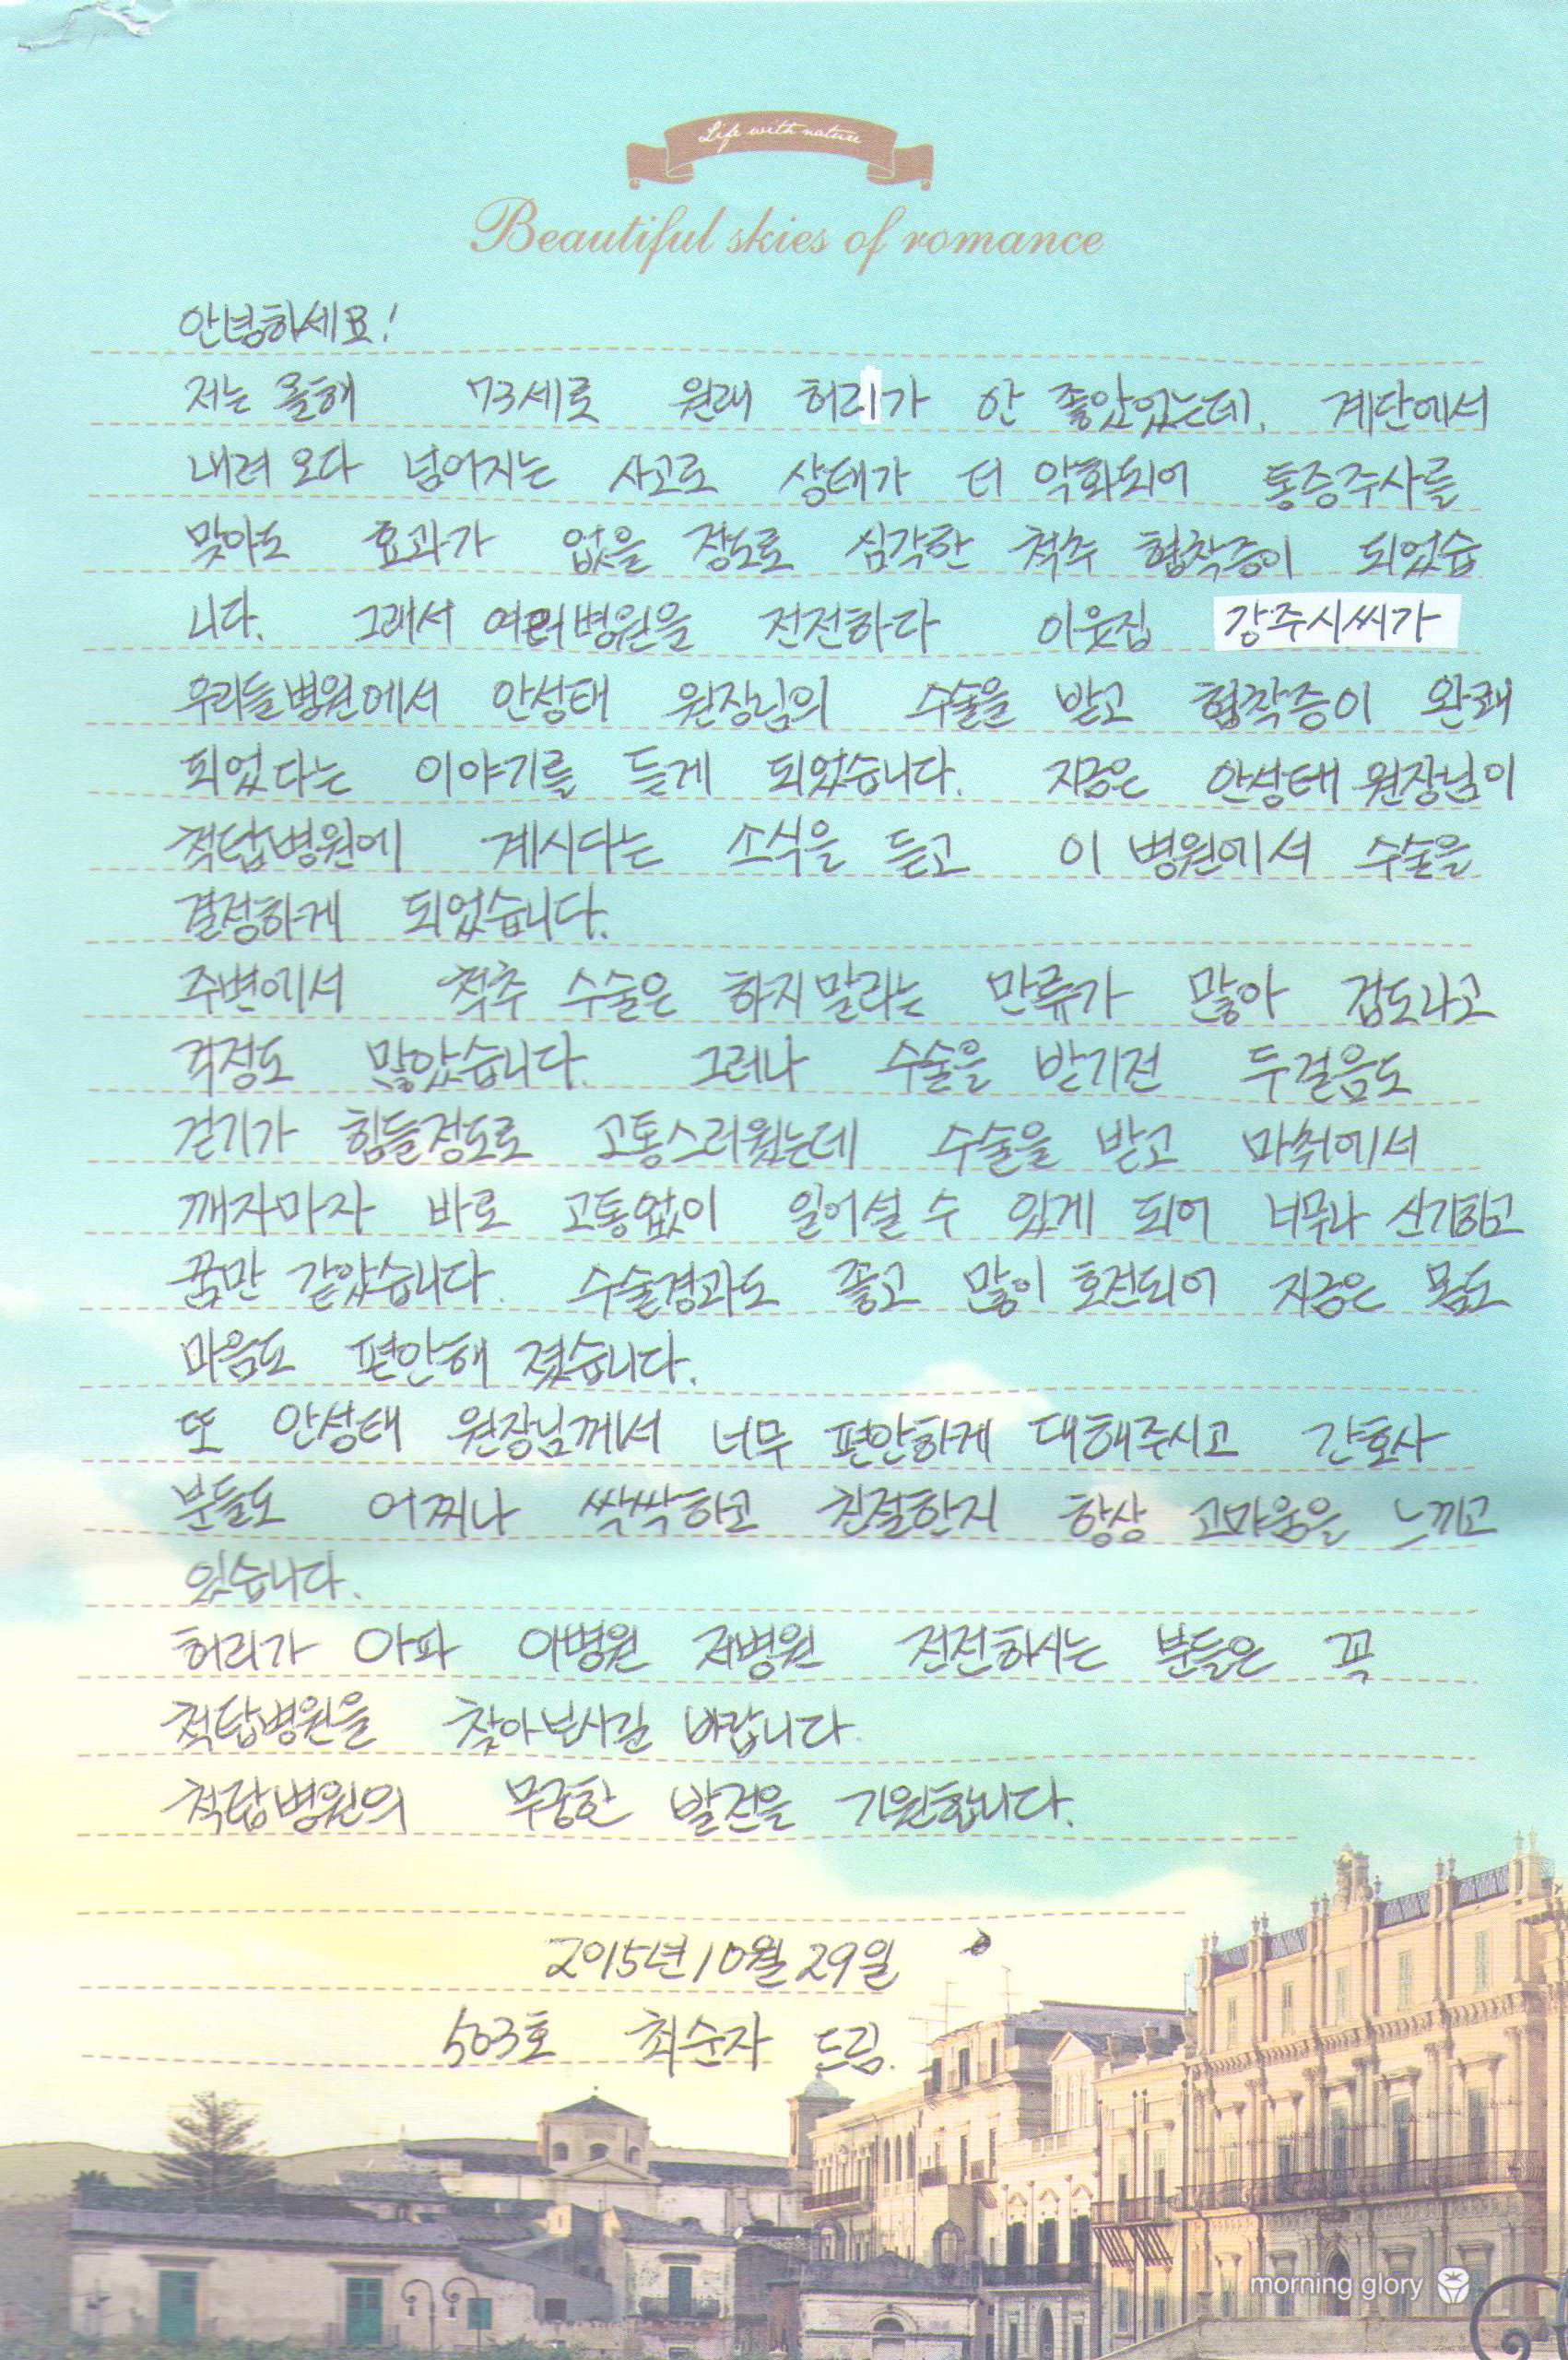 Life with nature
Beautiful skies of romance
안녕하세요!
저는 올해 73세로 원래 허리가 안 좋았었는데, 계단에서
내려오다 넘어지는 사고로 상태가 더 악화되어 통증주사를
맞아도 효과가 없을 정도로 심각한 척추 협착증이 되었습
니다. 그래서 여러병원을 전전하다 이웃집 강주시씨가
우리들병원에서 안성태 원장님의 수술을 받고 협착증이 완쾌
되었다는 이야기를 듣게 되었습니다. 지금은 안성태 원장님이
척탑병원에 계시다는 소식을 듣고 이 병원에서 수술을
결정하게 되었습니다.
주변에서 척추 수술은 하지말라는 만류가 많아 겁도나고
걱정도 많았습니다. 그러나 수술을 받기전 두걸음도
걷기가 힘들정도로 고통스러웠는데 수술을 받고 마취에서
깨자마자 바로 고통없이 일어설 수 있게 되어 너무나 신기하고
꿈만 같았습니다. 수술경과도 좋고 많이 호전되어 지금은 몸도
마음도 편안해 졌습니다.
또 안성태 원장님께서 너무 편안하게 대해주시고 간호사
분들도 어찌나 싹싹하고 친절한지 항상 고마움을 느끼고
있습니다.
허리가 아파 이병원 저병원 전전하시는 분들은 꼭
척탑병원을 찾아보시길 바랍니다.
척탑병원의 무궁한 발전을 기원합니다.
2015년 10월 29일
503호 최순자 드림.
morning glory